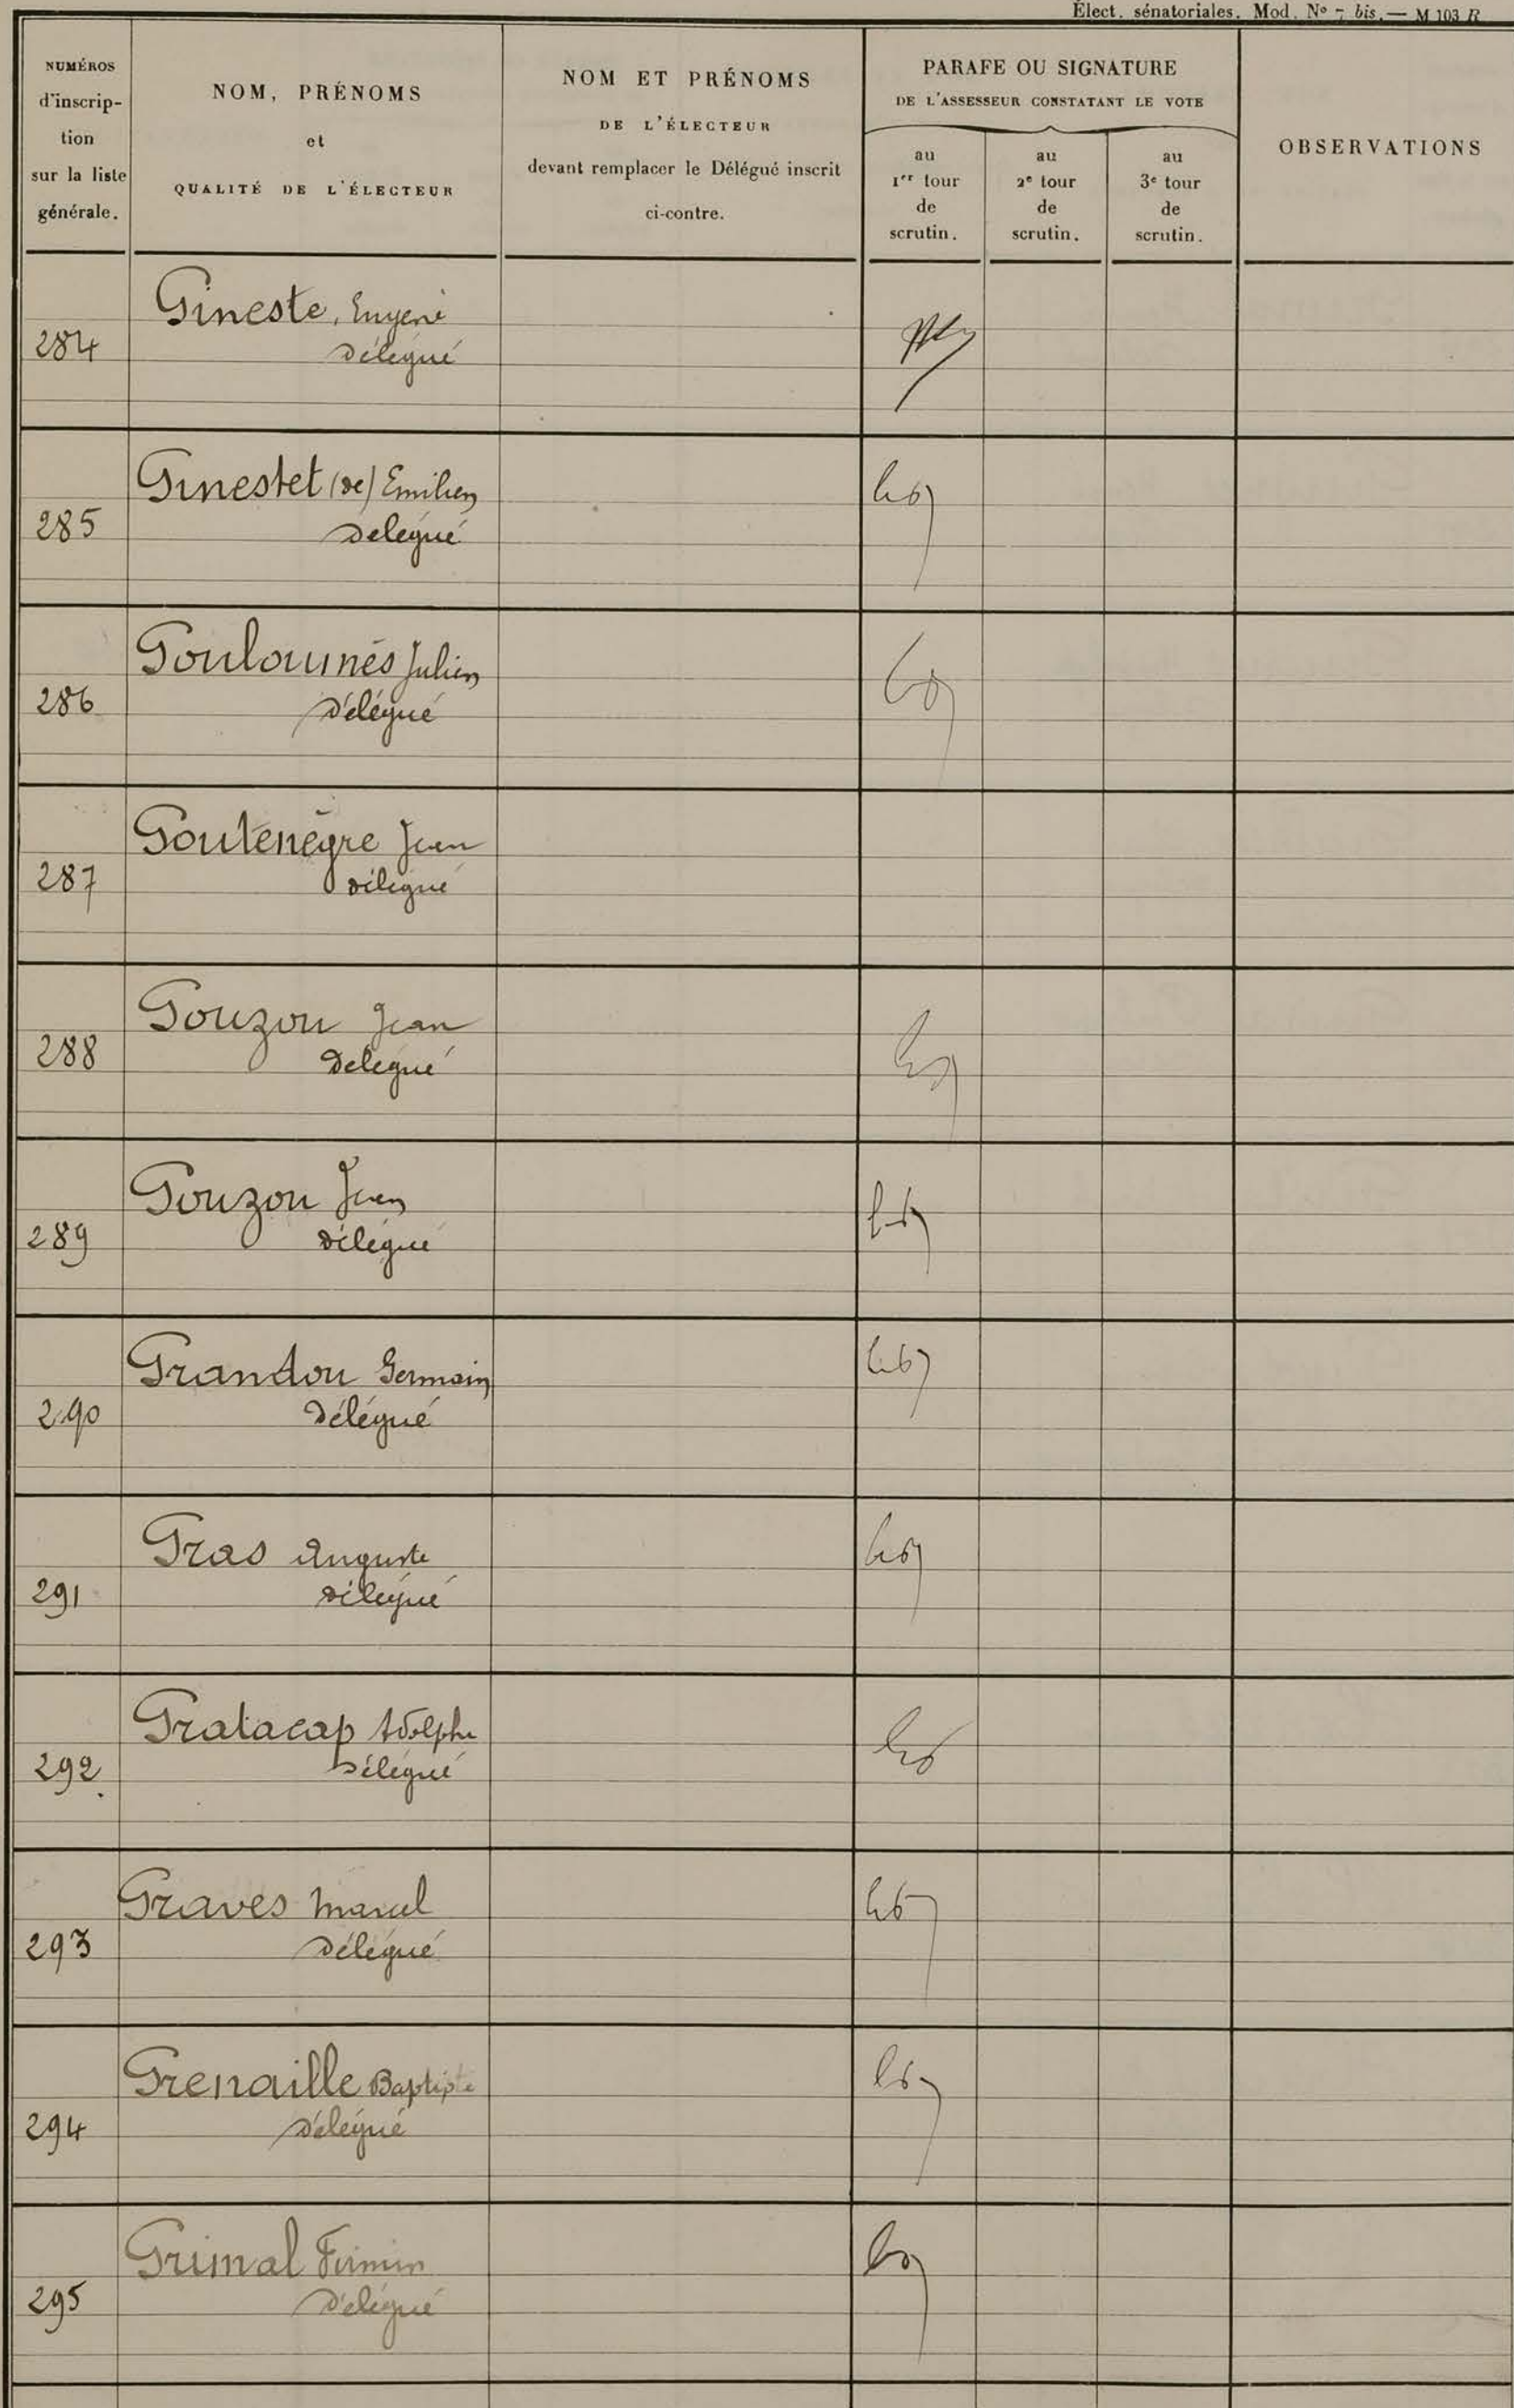 Élect. sénatoriales. Mod. Nº 7 bis. — M 103 R
NUMÉROS
d'inscrip-
tion
sur la liste
générale.
NOM, PRÉNOMS
et
QUALITÉ DE L'ÉLECTEUR
NOM ET PRÉNOMS
DE L'ÉLECTEUR
devant remplacer le Délégué inscrit
ci-contre.
PARAFE OU SIGNATURE
DE L'ASSESSEUR CONSTATANT LE VOTE
au
1er tour
de
scrutin.
au
2e tour
de
scrutin.
au
3e tour
de
scrutin.
OBSERVATIONS
Gineste, Eugène
284 Délégué
Ginestet (de) Emilien
285 Delégué
Gouloumès Julien
286 Délégué
Goutenègre Jean
287 Délégué
Gouzou Jean
288 Delegué
Gouzou Jean
289 Délégué
Grandou Germain
290 Délégué
Gras Auguste
291 Délégué
Gratacap Adolphe
292. Délégué
Graves Marcel
293 Délégué
Grenaille Baptiste
294 Délégué
Grimal Firmin
295 Délégué